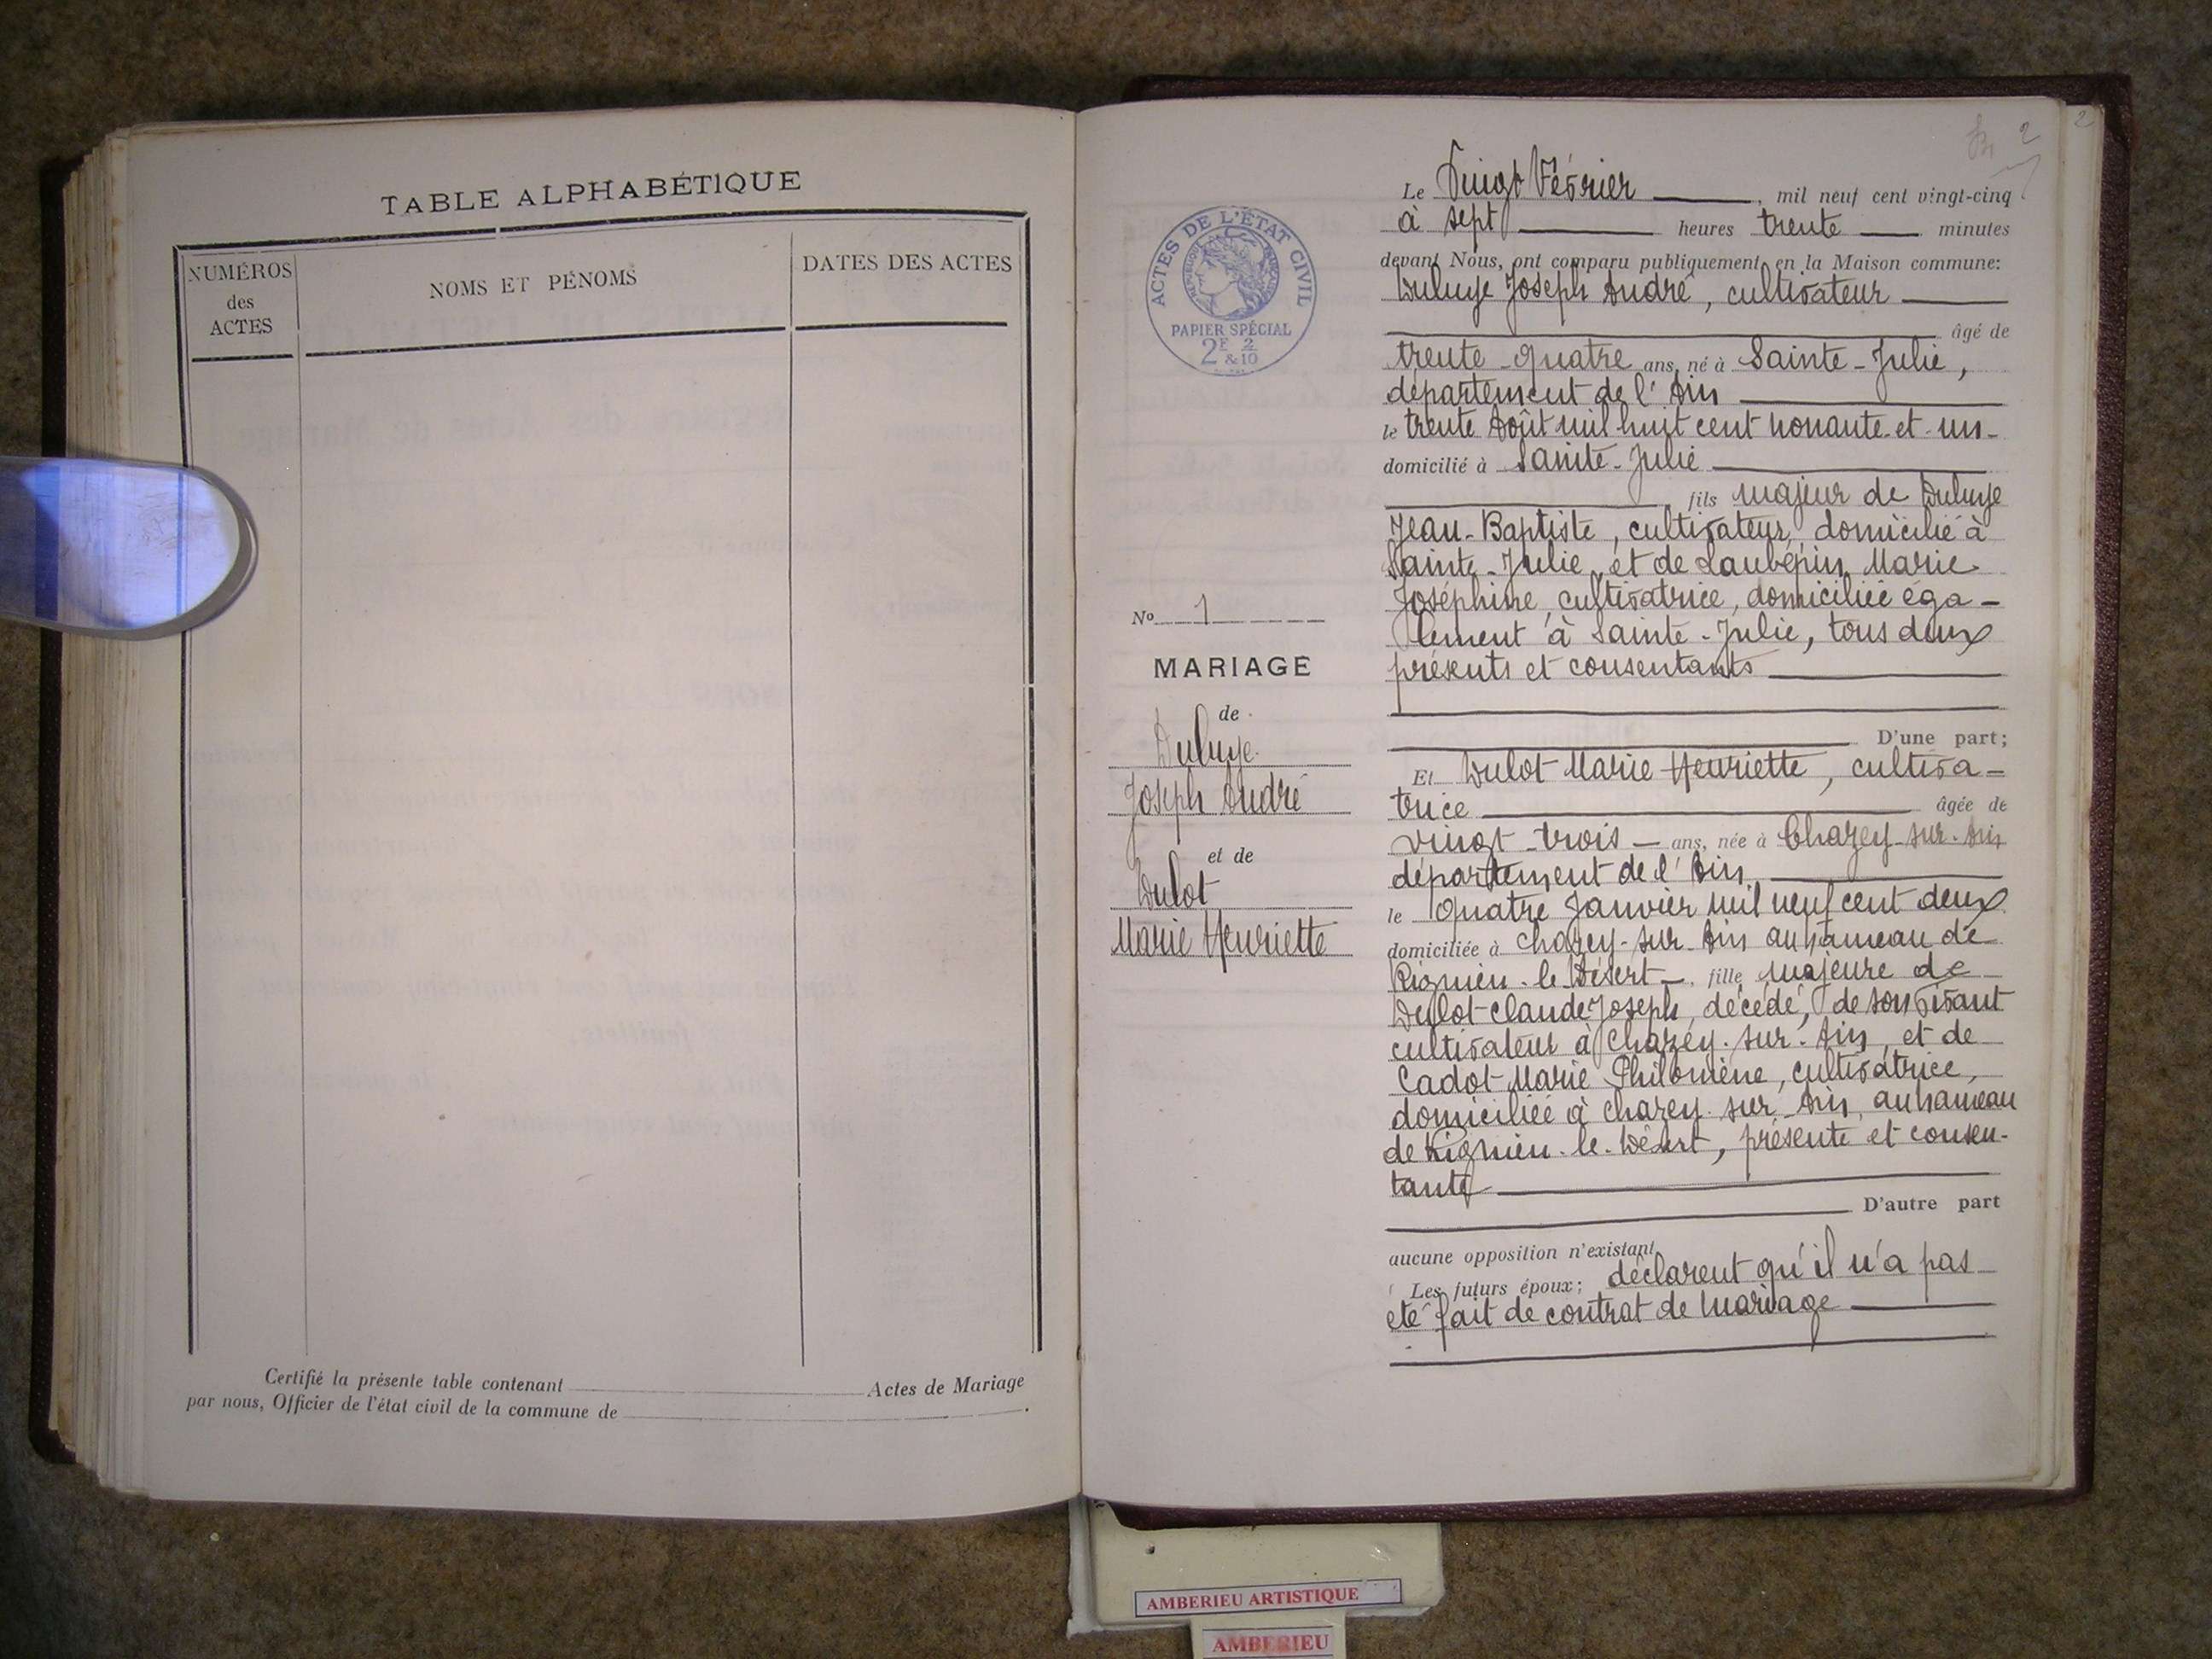 TABLE ALPHABÉTIQUE
NUMÉROS
des
ACTES
NOMS ET PÉNOMS
DATES DES ACTES
Certifié la présente table contenant Actes de Mariage
par nous, Officier de l'état civil de la commune de
ACTES DE L'ÉTAT CIVIL
PAPIER SPÉCIAL
2F 2
&10
No 1
MARIAGE
de
Duluye
Joseph André
et de
Dulot
Marie Henriette
2
2
Le Vingt Février, mil neuf cent vingt-cinq
à sept heures trente minutes
devant Nous, ont comparu publiquement en la Maison commune:
Duluye Joseph André, cultivateur
âgé de
trente-quatre ans, né à Sainte-Julie,
département de l'Ain
le trente Août mil huit cent nonante-et-un
domicilié à Sainte-Julie
fils majeur de Duluye
Jean-Baptiste, cultivateur, domicilié à
Sainte-Julie, et de Laubépin Marie
Joséphine, cultivatrice, domiciliée éga-
lement à Sainte-Julie, tous deux
présents et consentants
D'une part;
Et Dulot Marie Henriette, cultiva-
trice âgée de
vingt-trois ans, née à Chazey-sur-Ain
département de l'Ain
le quatre Janvier mil neuf cent deux
domiciliée à Chazey-sur-Ain au hameau de
Rignieu-le-Désert fille majeure de
Dulot Claude Joseph, décédé, de son vivant
cultivateur à Chazey-sur-Ain, et de
Cadot Marie Philomène, cultivatrice,
domiciliée à Chazey-sur-Ain, au hameau
de Rignieu-le-Désert, présente et consen-
tante
D'autre part
aucune opposition n'existant
Les futurs époux; déclarent qu'il n'a pas
été fait de contrat de mariage
AMBERIEU ARTISTIQUE
AMBERIEU